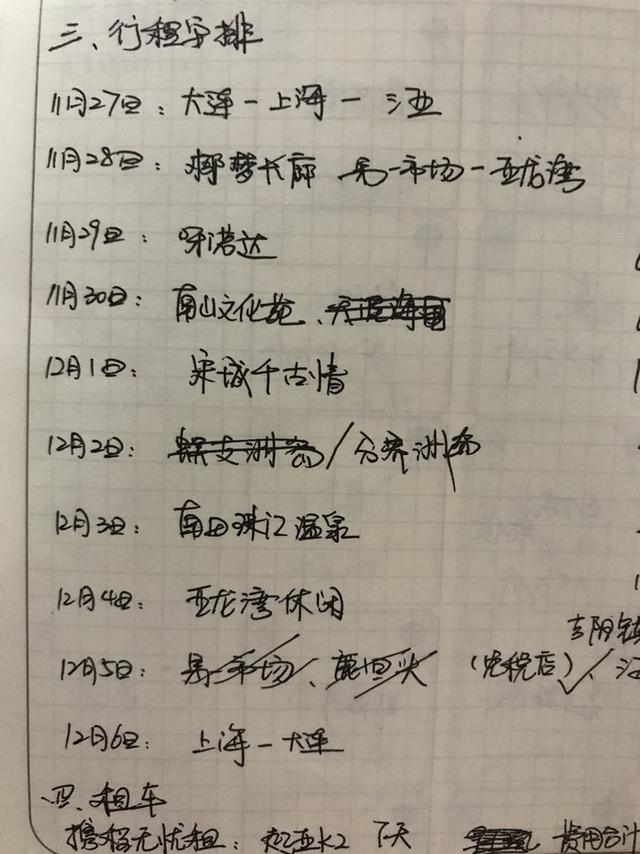 三、行程安排
11月27日：大连－上海－三亚
11月28日：椰梦长廊 第一市场－亚龙湾
11月29日：呀诺达
11月30日：南山文化苑、天涯海角
12月1日：宋城千古情
12月2日：蜈支洲岛/分界洲岛
12月3日：南田珠江温泉
12月4日：亚龙湾休闲
吉阳镇
12月5日：第一市场、鹿回头（免税店）✓、
12月6日：上海－大连
四、租车
携程无忧租： 7天 费用合计